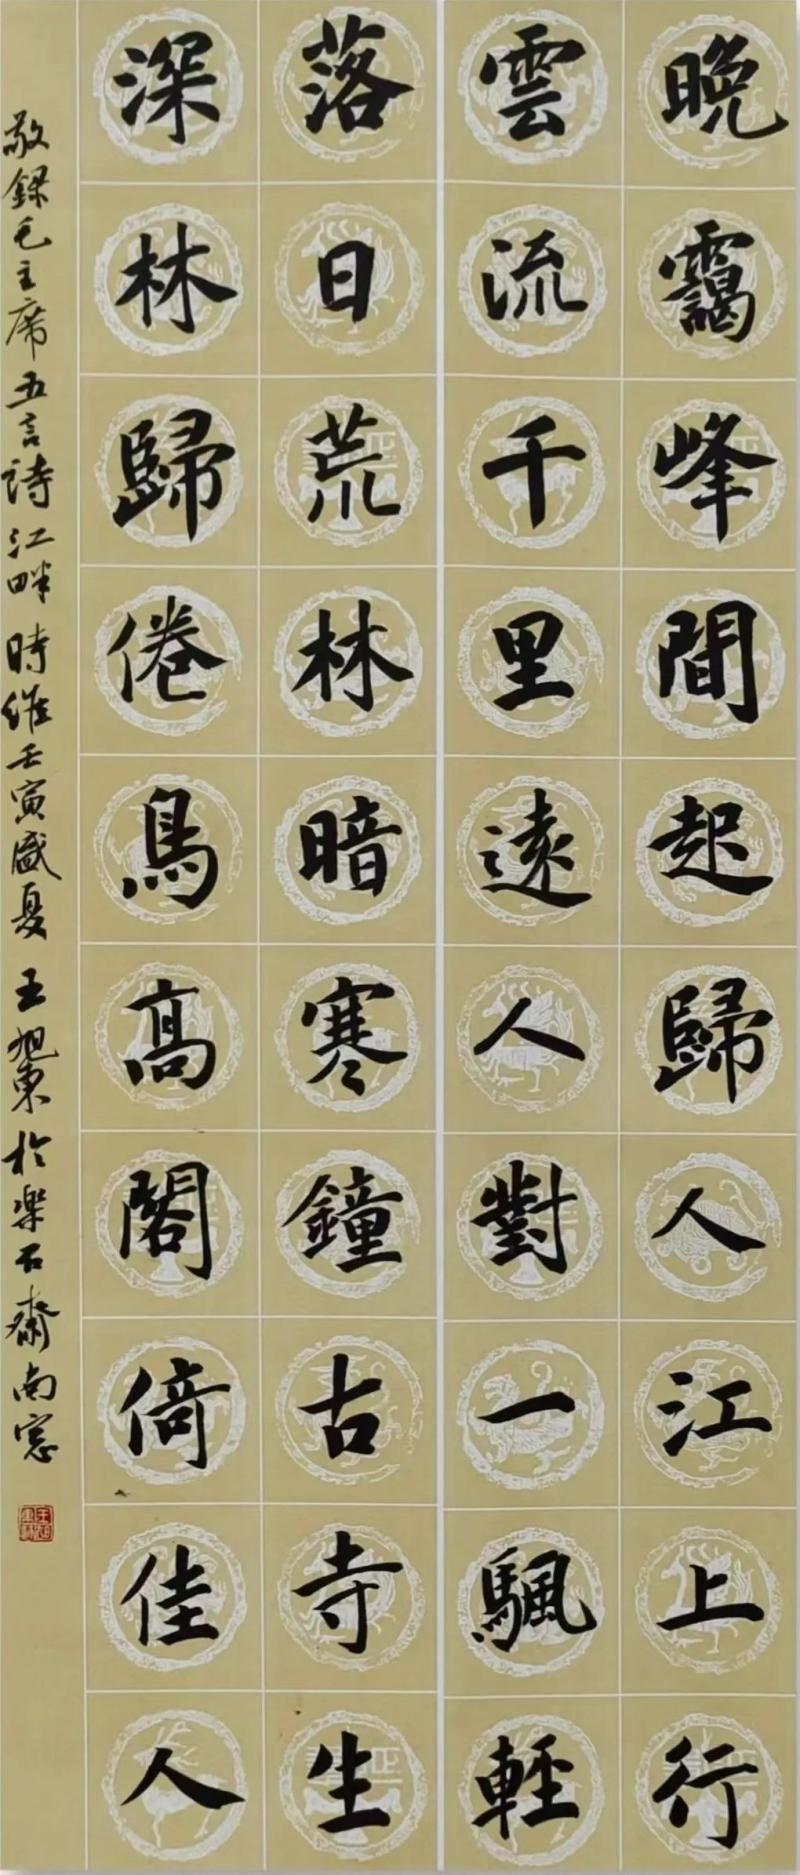 晚靄峰間起歸人江上行
雲流千里遠人對一颿輕
落日荒林暗寒鐘古寺生
深林歸倦鳥高閣倚佳人
敬錄毛主席五言詩江畔時維壬寅盛夏王旭東於樂石齋南窓